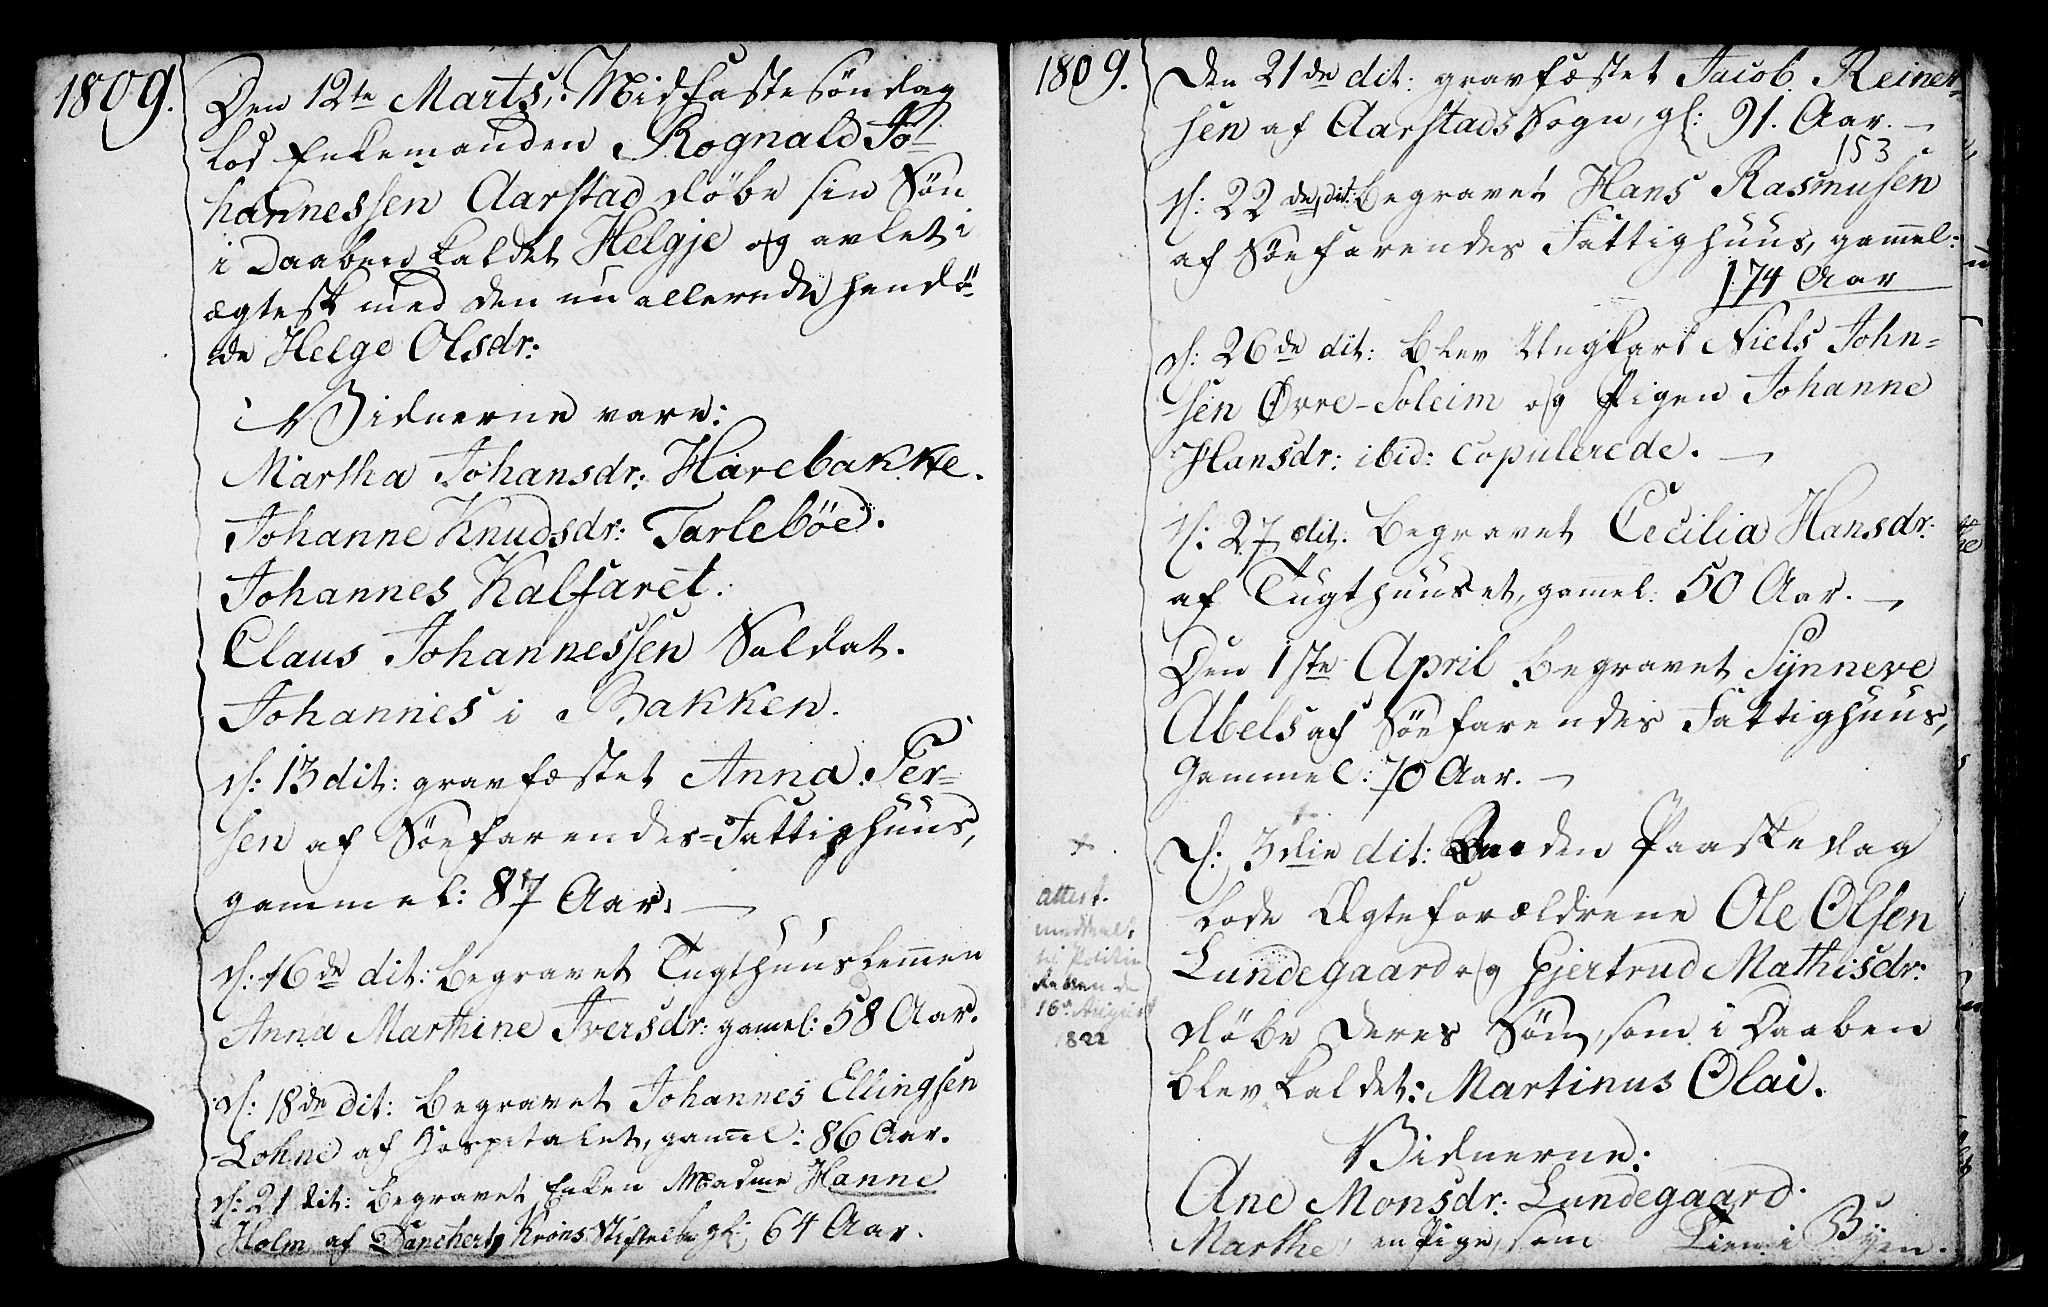 1809.
Den 12te Marts, Midfastesöndag
lod Enkemanden Rognald Jo-
hannessen Aarstad döbe sin Sön
i Daaben kaldet Helgje og avlet i
ægtesk med den nu allerede hendö-
de Helge Olsdr:
Vidnerne vare:
Martha Johansdr: Harebakke.
Johanne Knudsdr: Tarleböe.
Johannes Kalfaret.
Claus Johannessen Soldat.
Johannes i Bakken.
d: 13 dit: gravfæstet Anna Per-
sen af Söefarendes-Fattighuus,
gammel: 87 Aar. —
d: 16de dit: begravet Tugthuuslemmen
Anna Marthine Iversdr: gamel: 58 Aar.
d: 18de dit: begravet Johannes Ellingsen
Lohne af Hospitalet, gamel: 86 Aar.
d: 21 dit: begravet Enken Madme Hanne
Holm af Danchert Krons Stiftelse gl: 64 Aar.
1809.
Den 21de dit: gravfæstet Jacob Reiner-
sen af Aarstads Sogn, gl: 91. Aar. —
153
d: 22de dit: begravet Hans Rasmusen
af Söefarendes Fattighuus, gamel:
74 Aar
d: 26de dit: blev Ungkarl Niels John-
sen Øvre-Soleim og Pigen Johanne
Hansdr: ibid: copulerede. —
d: 27 dit: begravet Cecilia Hansdr:
af Tugthuuset, gamel: 50 Aar. —
Den 1ste April begravet Synneve
Abels af Söefarendes Fattighuus,
Gammel: 70 Aar. —
d: 3die dit: Anden Paaskedag
lode Ægteforældrene Ole Olsen
Lundegaard og Gjertrud Mathisdr:
döbe deres Sön, som i Daaben
blev kaldet: Martinus Olai.
Vidnerne:
Ane Monsdr: Lundegaard.
Marthe, en Pige, som tien: i Byen.
+
attest.
meddeelt
til Politie
Retten de
16de August
1822